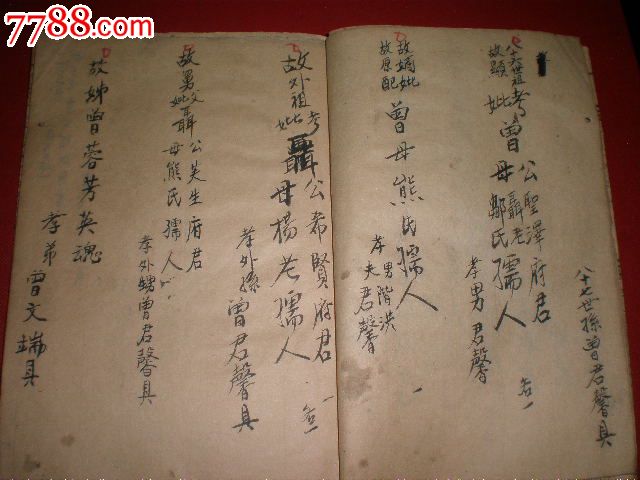 7788.com
八十七世孫曾君馨具
八十六世祖考
故顯妣曾公聖澤府君
母聶老鄒氏孺人
孝男君馨
各一
故嫡妣
故原配曾母熊氏孺人
男階洪
孝夫君馨
一
故外祖考妣聶公希賢府君
母楊老孺人
一
各一
孝外孫曾君馨具
故舅父妣聶公芙生府君
母熊氏孺人
孝外甥曾君馨具
故姊曾蓉芳英魂
孝弟曾文端具